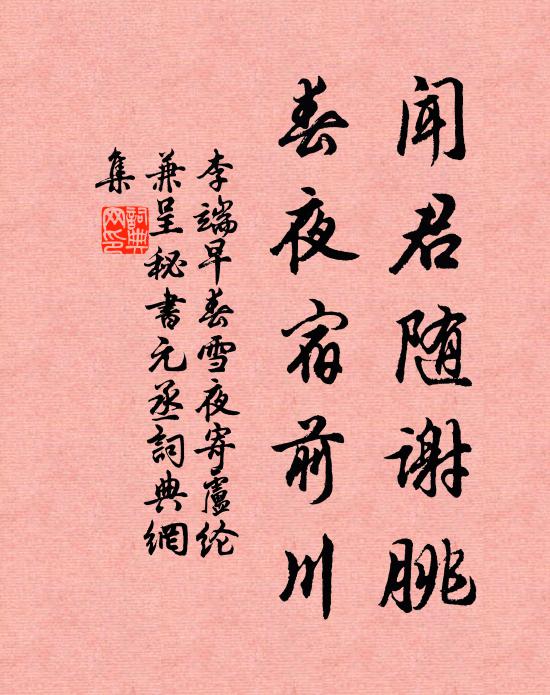 闻君随谢朓
春夜宿前川
李端早春雪夜寄盧纶
兼呈秘書元丞詞典網
集
詞典網印